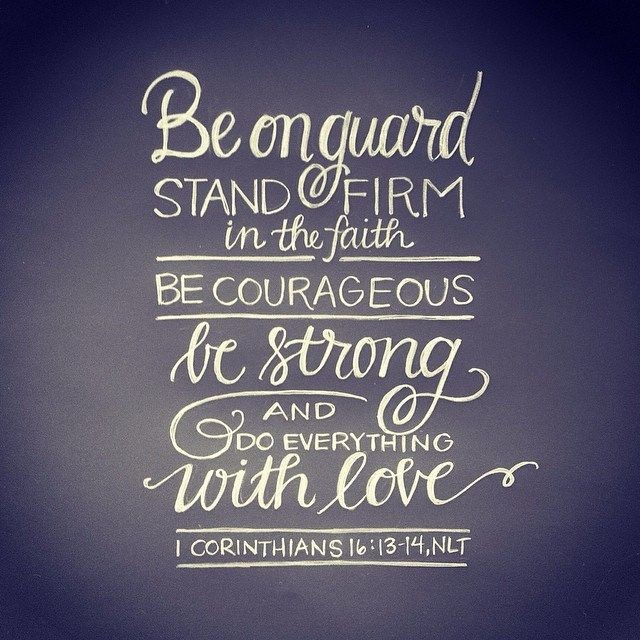 Be on guard
STAND FIRM
in the faith
BE COURAGEOUS
be strong
AND
DO EVERYTHING
with love
1 CORINTHIANS 16:13-14, NLT